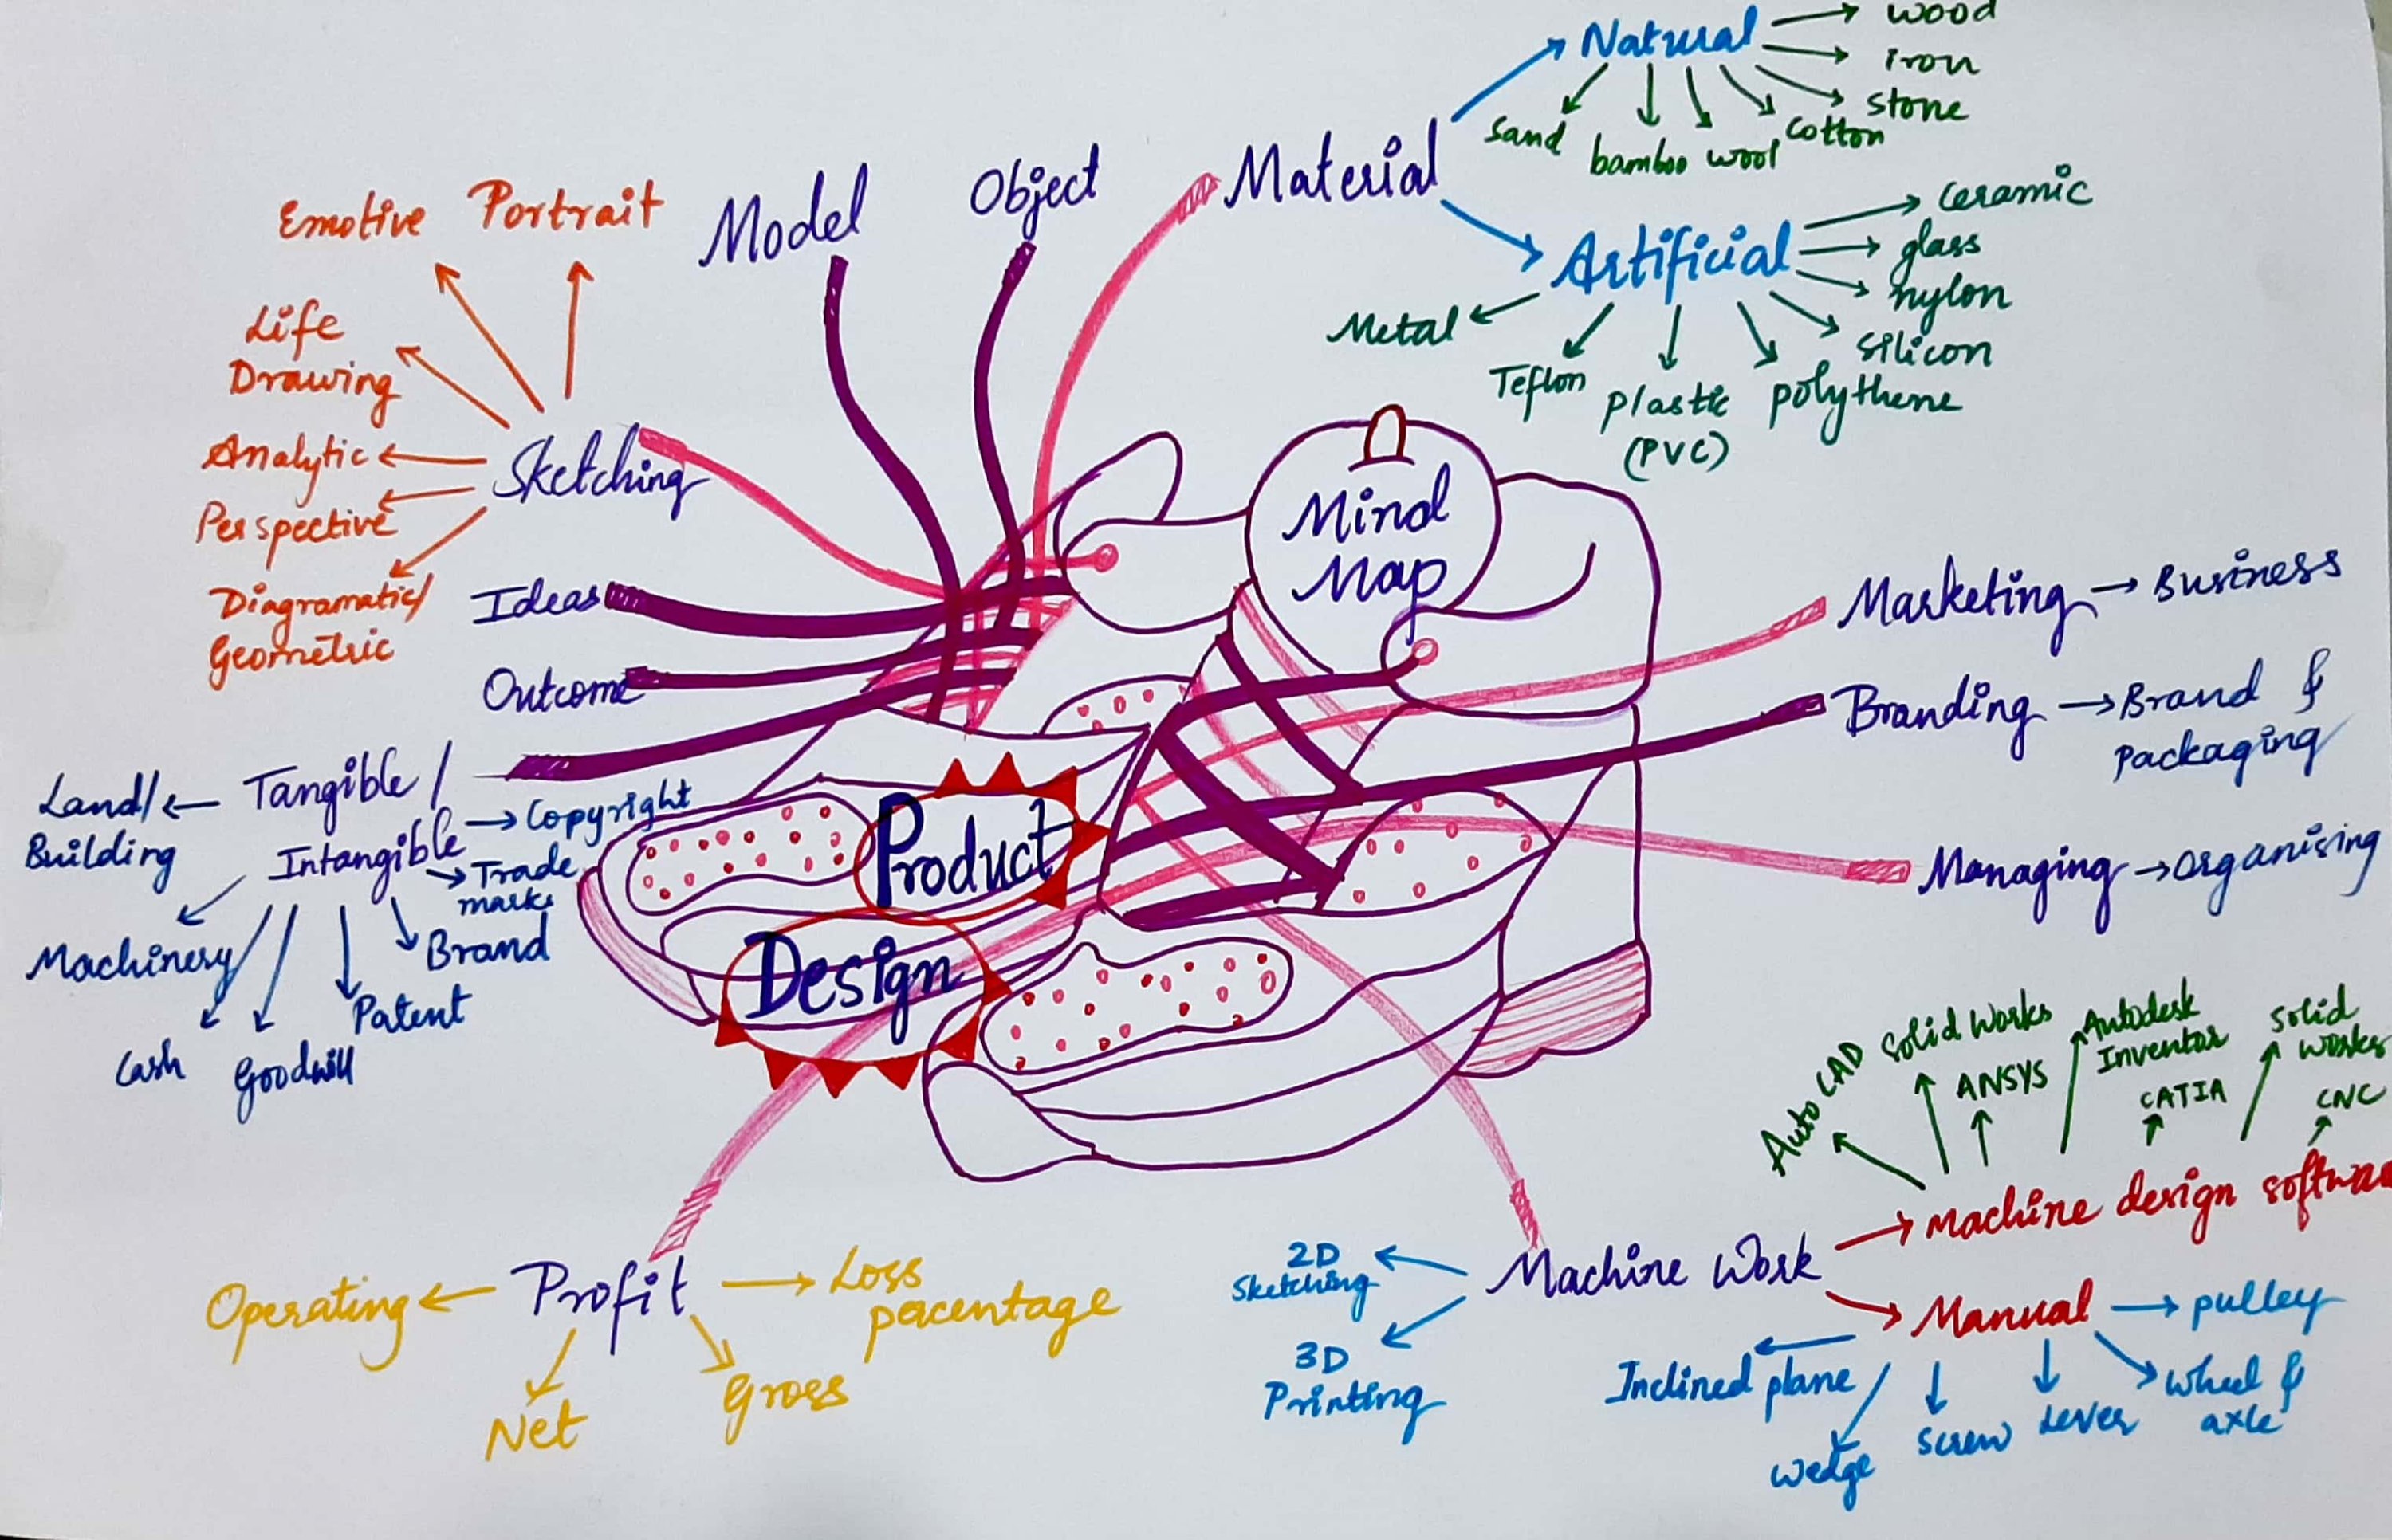 Natural
wood
iron
stone
cotton
wool
bamboo
sand
Material
Artificial
ceramic
glass
nylon
silicon
polythene
plastic
(PVC)
Teflon
Metal
Object
Model
Emotive
Portrait
Life
Drawing
Analytic
Perspective
Diagramatic/
Geometric
Sketching
Ideas
Outcome
Mind
Map
Product
Design
Marketing
Business
Branding
Brand &
Packaging
Managing
organising
Land/
Building
Tangible/
Intangible
Copyright
Trade
marks
Brand
Patent
Goodwill
Cash
Machinery
Auto CAD
Solid Works
ANSYS
Autodesk
Inventor
CATIA
Solid
works
CNC
Machine design softwar
Machine Work
2D
Sketching
3D
Printing
Manual
pulley
wheel &
axle
Lever
screw
wedge
Inclined plane
Profit
Operating
Loss
percentage
Net
Gross